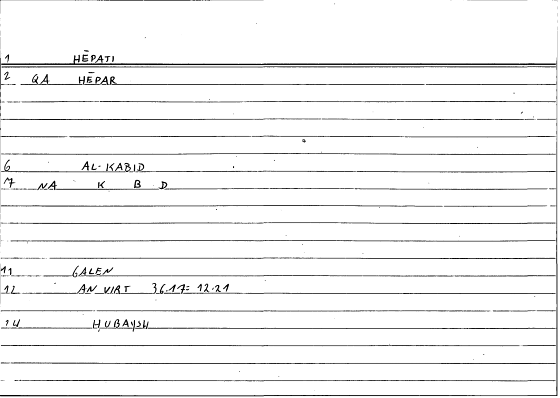 1 HĒPATI
2 QA HĒPAR
6 AL-KABID
7 NA K B D
11 GALEN
12 AN VIRT 36.17= 12.21
14 ḤUBAYSH